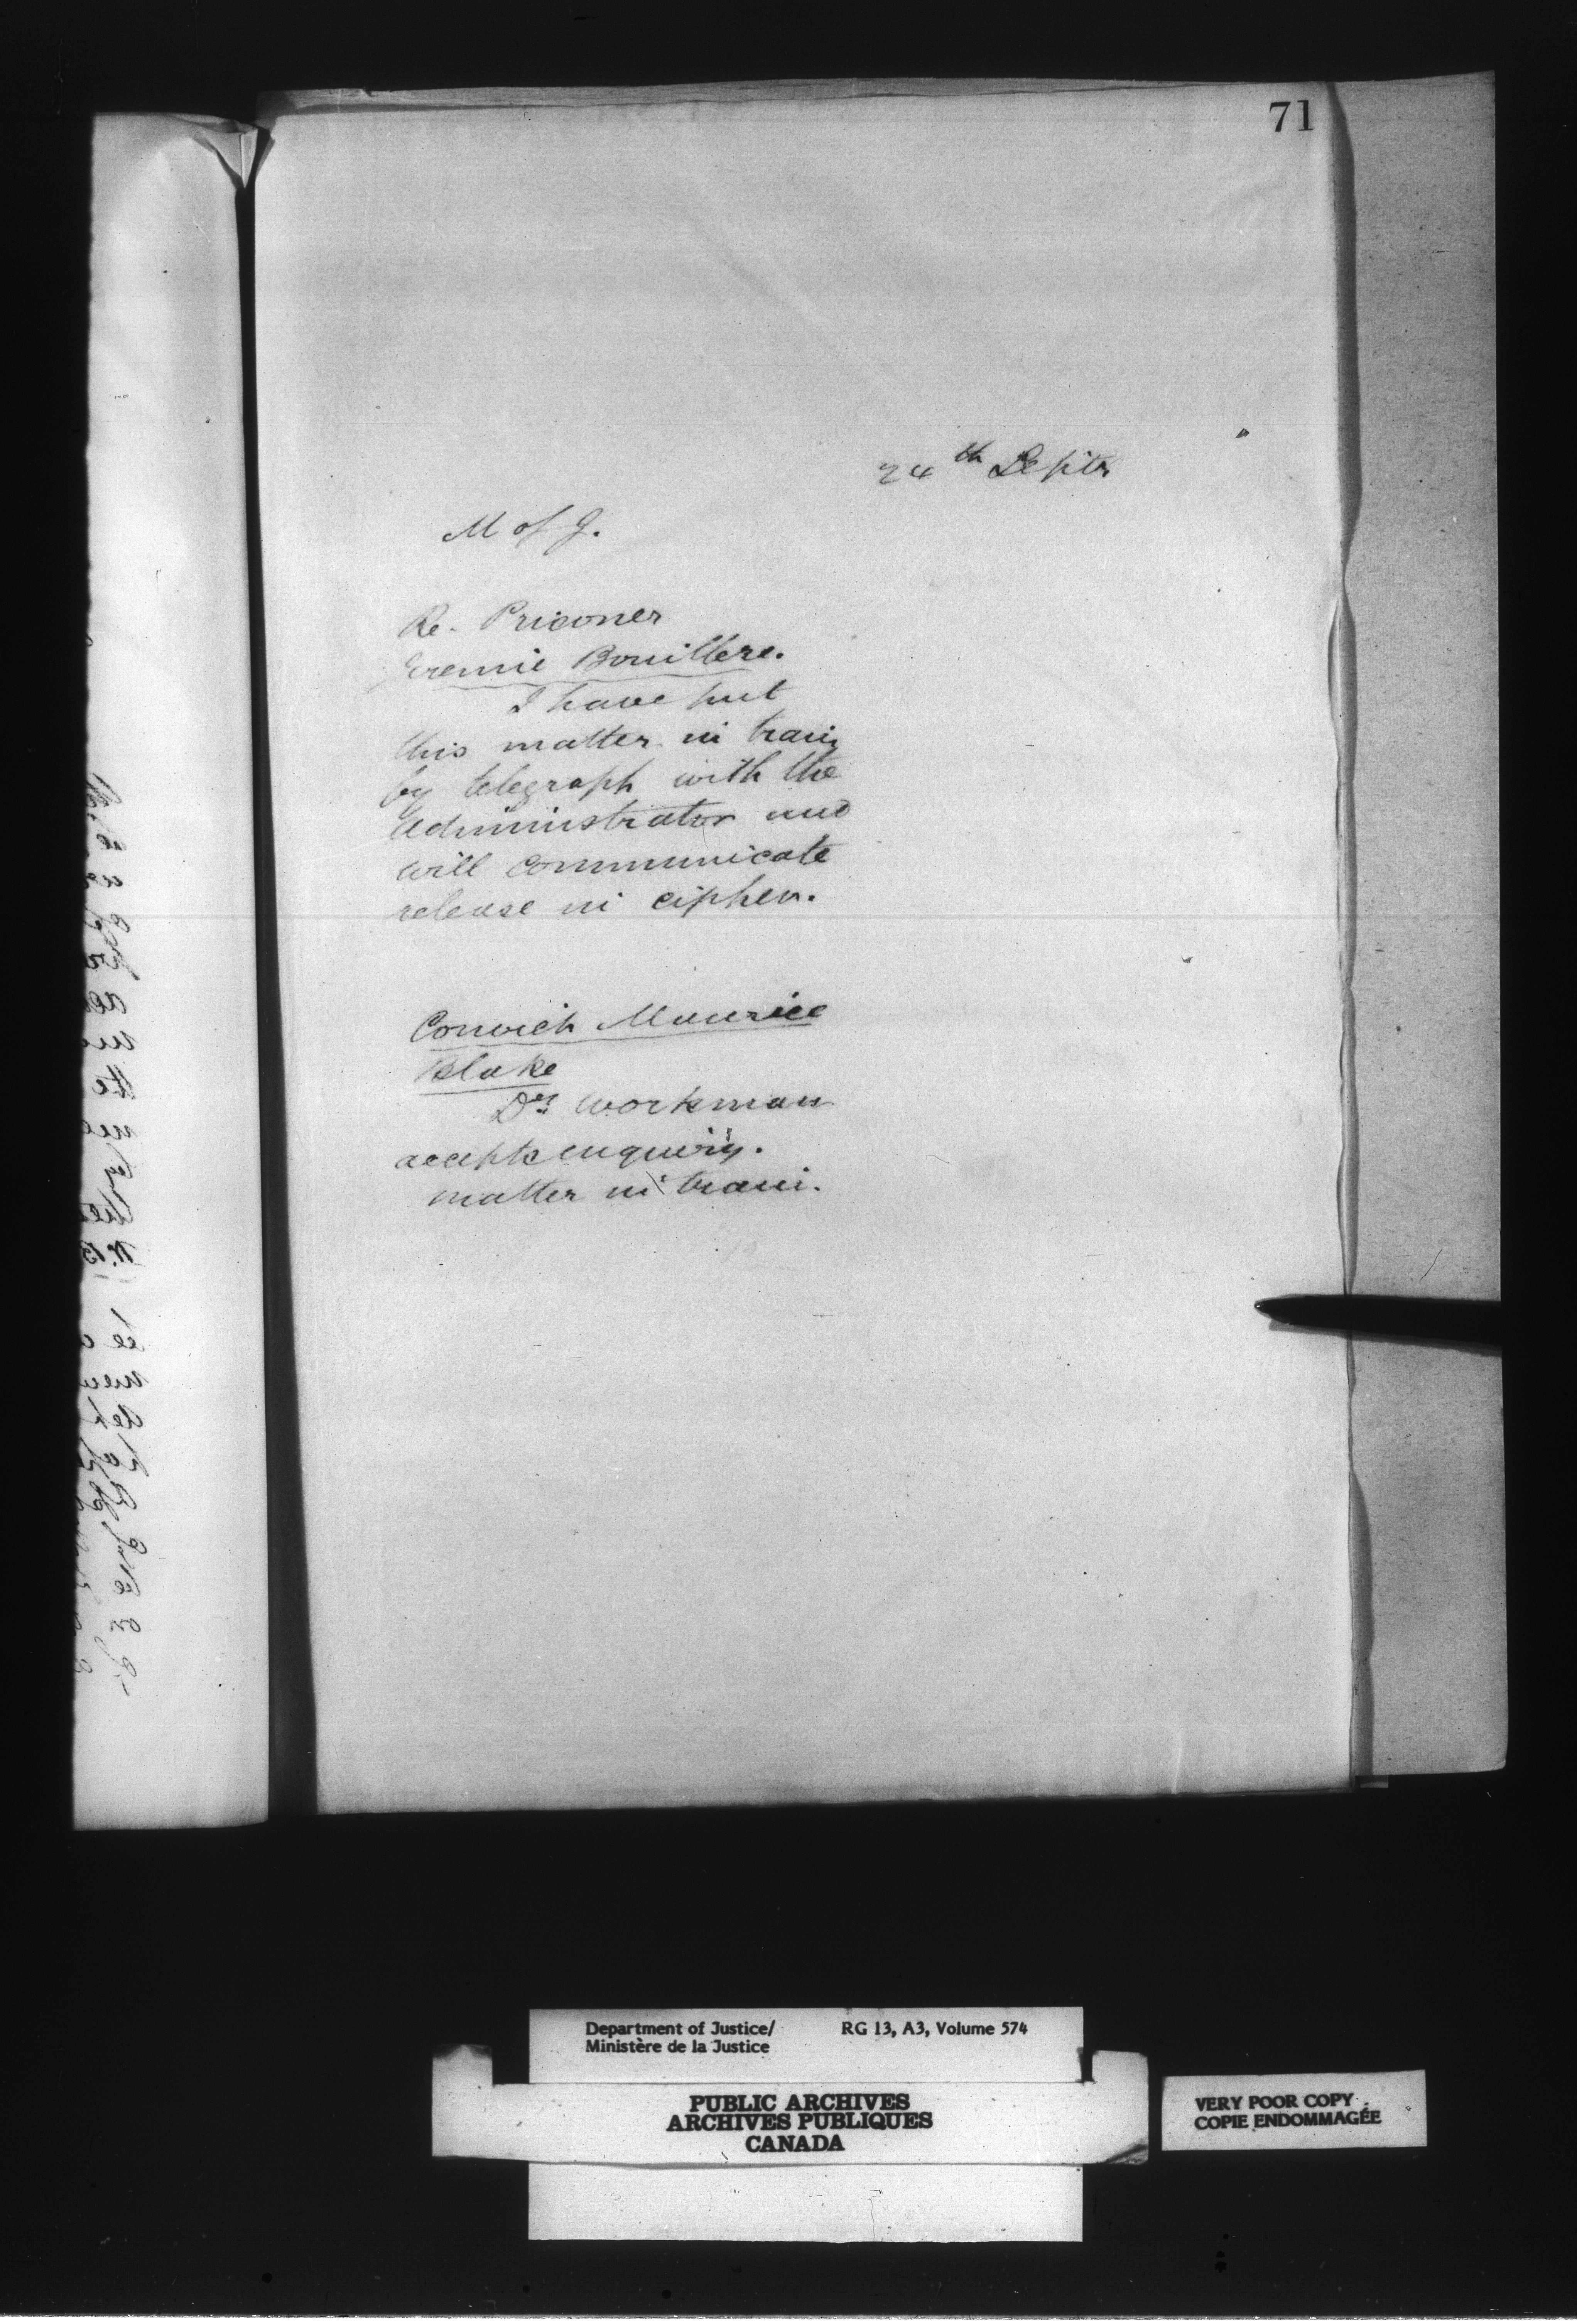 71
24th Septr
M of J.
Re. Prisoner
Jeremie Bouillere.
I have put
this matter in train
by telegraph with the
Administrator and
will communicate
release in cipher.
Convict Maurice
Blake
Dr. Workman
accepts enquiry.
matter in train.
Department of Justice/
Ministère de la Justice
RG 13, A3, Volume 574
PUBLIC ARCHIVES
ARCHIVES PUBLIQUES
CANADA
VERY POOR COPY
COPIE ENDOMMAGÉE